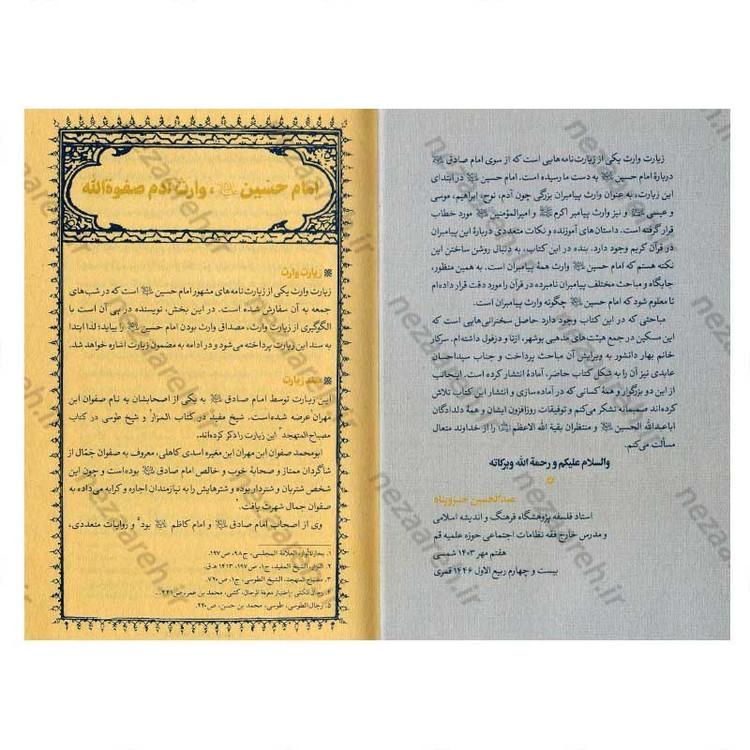 زیارت وارث یکی از زیارت‌نامه‌هایی است که از سوی امام صادق ﷷ
دربارهٔ امام حسین ﷷ به دست ما رسیده است. امام حسین ﷷ در ابتدای
این زیارت، به عنوان وارث پیامبران بزرگی چون آدم، نوح، ابراهیم، موسی
و عیسی و نیز وارث پیامبر اکرم و امیرالمؤمنین مورد خطاب
قرار گرفته است. داستان‌های آموزنده و نکات متعددی دربارهٔ این پیامبران
در قرآن کریم وجود دارد. بنده در این کتاب، به دنبال روشن ساختن این
نکته هستم که امام حسین وارث همهٔ پیامبران است. به همین منظور،
جایگاه و مباحث مختلف پیامبران نامبرده در قرآن را مورد دقت قرار داده‌ام
تا معلوم شود که امام حسین چگونه وارث پیامبران است.
مباحثی که در این کتاب وجود دارد حاصل سخنرانی‌هایی است که
این مسکین در جمع هیئت‌های مذهبی بوشهر، ازنا و دزفول داشته‌ام. سرکار
خانم بهار دانشور به ویرایش آن مباحث پرداخت و جناب سیداحسان
عابدی نیز آن را به شکل کتاب حاضر، آمادهٔ انتشار کرده است. اینجانب
از این دو بزرگوار و همهٔ کسانی که در آماده‌سازی و انتشار این کتاب تلاش
کرده‌اند صمیمانه تشکر می‌کنم و توفیقات روزافزون ایشان و همهٔ دلدادگان
اباعبدالله الحسین و منتظران بقیة الله الاعظم را از خداوند متعال
مسألت می‌کنم.
والسلام علیکم و رحمة الله وبرکاته
عبدالحسین خسروپناه
استاد فلسفه پژوهشگاه فرهنگ و اندیشه اسلامی
و مدرس خارج فقه نظامات اجتماعی حوزه علمیه قم
هفتم مهر ۱۴۰۳ شمسی
بیست و چهارم ربیع الاول ۱۴۴۶ قمری
امام حسین، وارث آدم صفوة الله
زیارت وارث
زیارت وارث یکی از زیارت‌نامه‌های مشهور امام حسین است که در شب‌های
جمعه به آن سفارش شده است. در این بخش، نویسنده در پی آن است با
الگوگیری از زیارت وارث، مصداق وارث بودن امام حسین را بیابد؛ لذا ابتدا
به سند این زیارت پرداخته می‌شود و در ادامه به مضمون زیارت اشاره خواهد شد.
سند زیارت
این زیارت توسط امام صادق به یکی از اصحابشان به نام صفوان ابن
مهران عرضه شده‌است. شیخ مفید در کتاب المزار و شیخ طوسی در کتاب
مصباح المتهجد این زیارت را ذکر کرده‌اند.
ابومحمد صفوان ابن مهران ابن مغیره اسدی کاهلی، معروف به صفوان جمّال از
شاگردان ممتاز و صحابهٔ خوب و خالص امام صادق بوده است و چون این
شخص شتربان و شتردار بوده و شترهایش را به نیازمندان اجاره و کرایه می‌داده به
صفوان جمال شهرت یافت.
وی از اصحاب امام صادق و امام کاظم بود و روایات متعددی،
۱. بحارالأنوار، العلامة المجلسی، ج۹۸، ص۱۹۷.
۲. المزار، الشیخ المفید، ج۱، ص۱۹۷، ۱۴۱۳ ه.ق.
۳. مصباح المتهجد، الشیخ الطوسی، ج۱، ص۷۲۰.
۴. رجال الکشی - إختیار معرفة الرجال، کشی، محمد بن عمر، ص۴۴۱...
۵. رجال الطوسی، طوسی، محمد بن حسن، ص۲۲۰.
nezaareh.ir